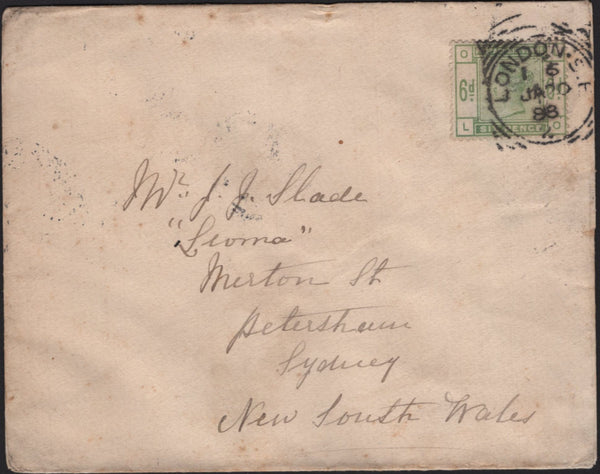 Mr. J. J. Slade
"Leoma"
Merton St
Petersham
Sydney
New South Wales
LONDON. S.E
5
JA 20
88
O
6d.
L SIXPENCE O